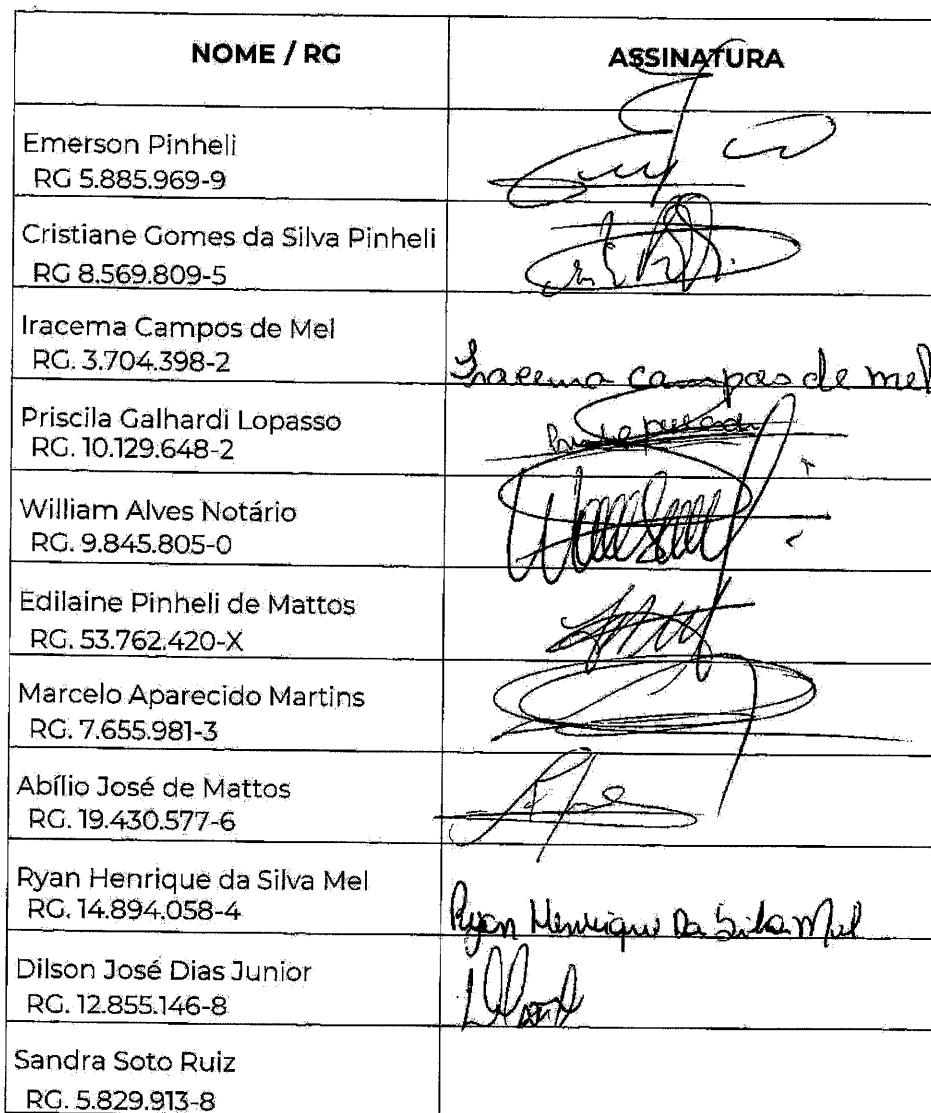 NOME / RG
ASSINATURA
Emerson Pinheli
RG 5.885.969-9
Cristiane Gomes da Silva Pinheli
RG 8.569.809-5
Iracema Campos de Mel
RG. 3.704.398-2
Iracema Campos de mel
Priscila Galhardi Lopasso
RG. 10.129.648-2
William Alves Notário
RG. 9.845.805-0
Edilaine Pinheli de Mattos
RG. 53.762.420-X
Marcelo Aparecido Martins
RG. 7.655.981-3
Abílio José de Mattos
RG. 19.430.577-6
Ryan Henrique da Silva Mel
RG. 14.894.058-4
Ryan Henrique Da Silva Mel
Dilson José Dias Junior
RG. 12.855.146-8
Sandra Soto Ruiz
RG. 5.829.913-8